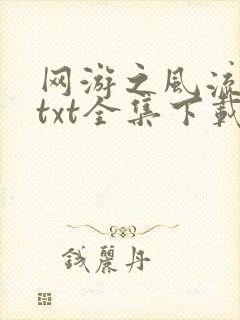 网游之风流
txt全集下载
钱丽丹